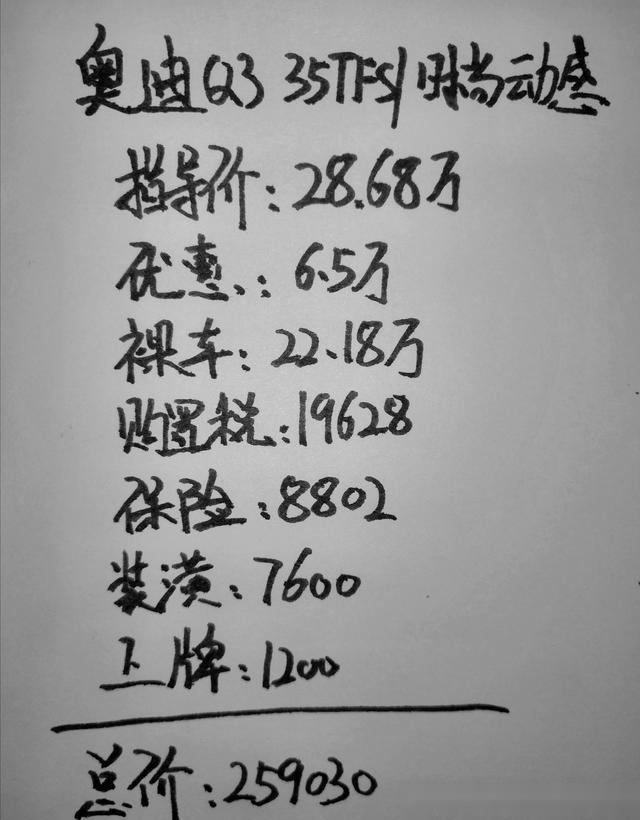 奥迪Q3 35TFSI时尚动感
指导价:28.68万
优惠:6.5万
裸车:22.18万
购置税:19628
保险:8802
装潢:7600
上牌:1200
总价:259030